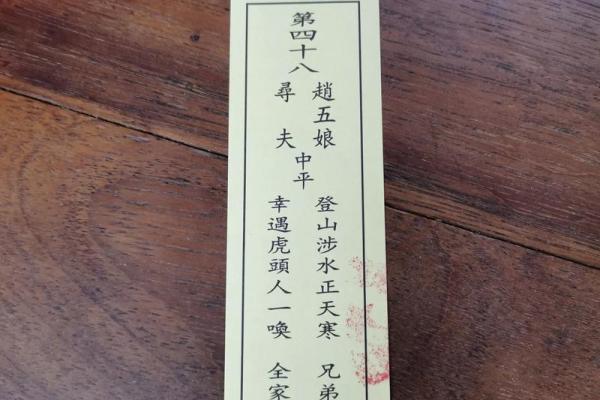 第四十八
趙五娘
尋夫
中平
登山涉水正天寒 兄弟
幸遇虎頭人一喚 全家